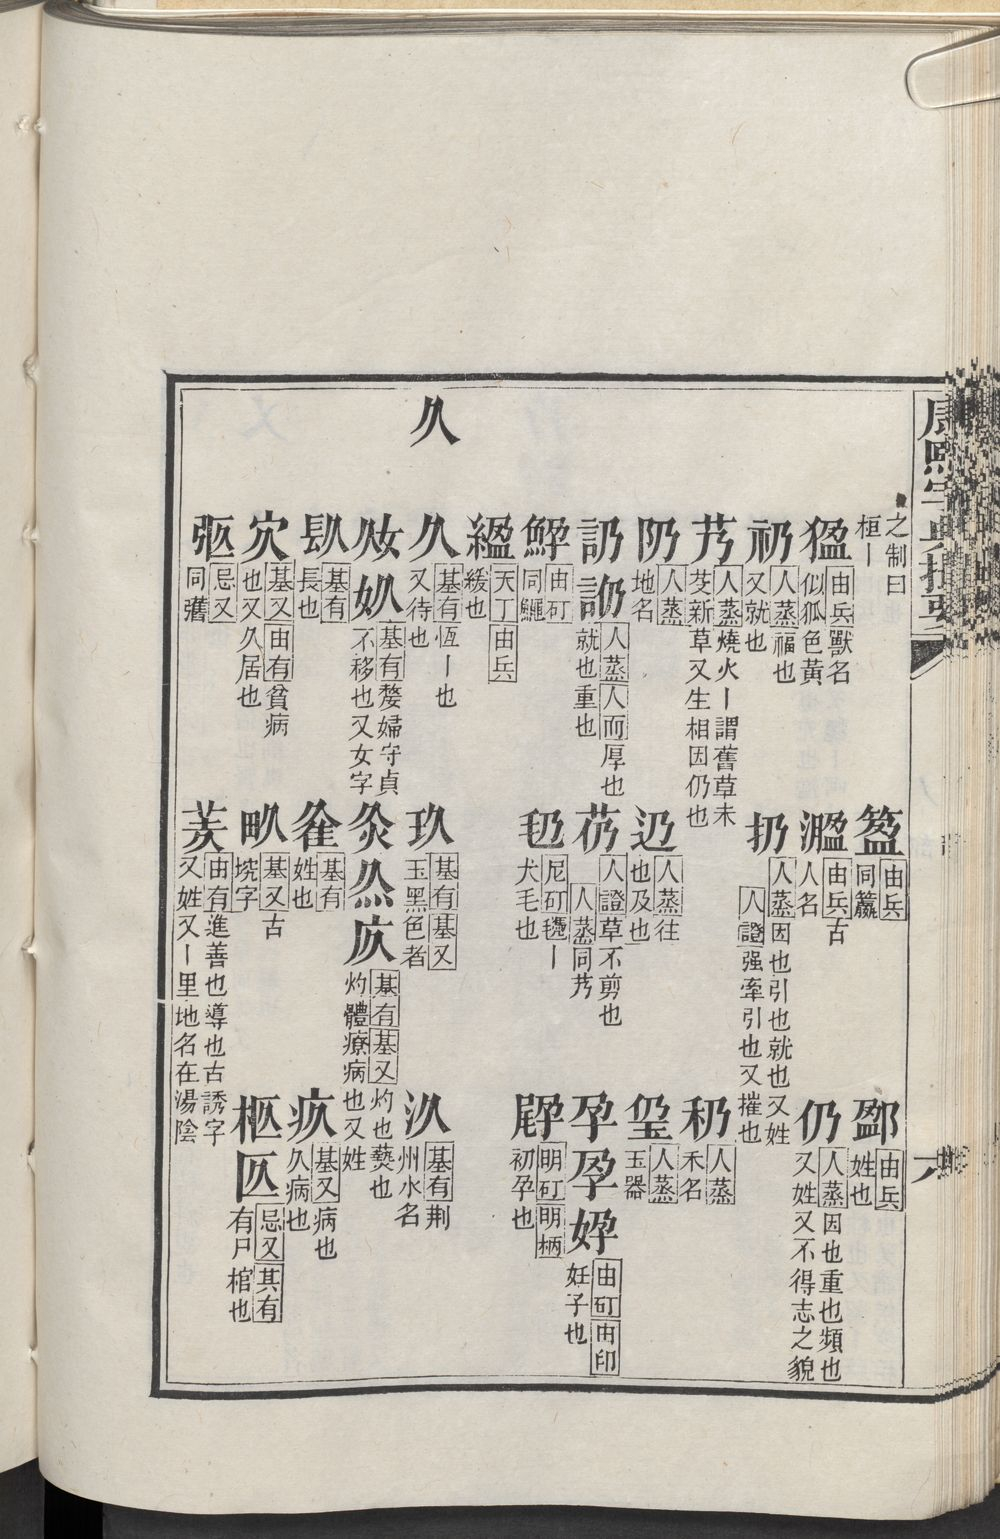 康熙字典撮要
六
之制曰桓丨
由兵同籯
由兵姓也
由兵獸名似狐色黃
溋 由兵古人名
仍 人蒸因也重也頻也又姓又不得志之貌
礽 人蒸福也又就也
扔 人蒸因也引也就也又姓人證强牽引也又摧也
艿 人蒸燒火丨謂舊草未芟新草又生相因仍也
人蒸地名
辸 人蒸往也及也
人蒸禾名
人蒸玉器
人蒸人而厚也就也重也
芿 人證草不剪也人蒸同艿
孕 由矴由印妊子也
由矴同鱦
尼矴氆丨犬毛也
明矴明柄初孕也
縕 天丁由兵緩也
久
久 基有恆丨也又待也
玖 基有基又玉黑色者
汣 基有荆州水名
奺 基有嫠婦守貞不移也又女字
灸 基有基又灼也爇也灼體療病也又姓
镹 基有長也
基有姓也
疚 基又病也久病也
㝌 基又由有貧病也又久居也
畂 基又古堗字
柩 匛 忌又其有有尸棺也
忌又同匶
羑 由有進善也導也古誘字又姓又丨里地名在湯陰